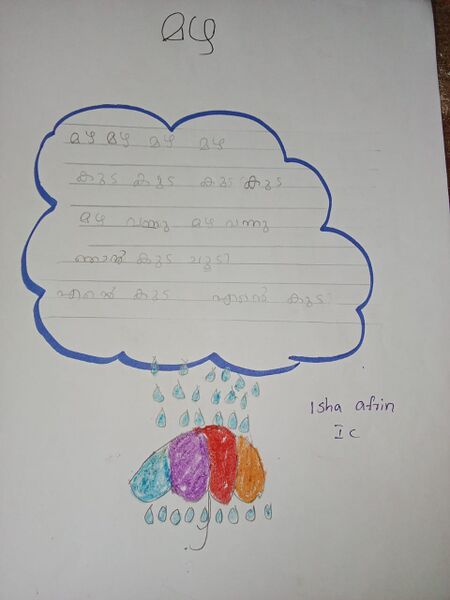 മഴ
മഴ മഴ മഴ മഴ
കുട കുട കുട കുട
മഴ വന്നു മഴ വന്നു
ഞാൻ കുട ചൂടി
എന്റെ കുട എന്റെ കുട
Isha afrin
I C